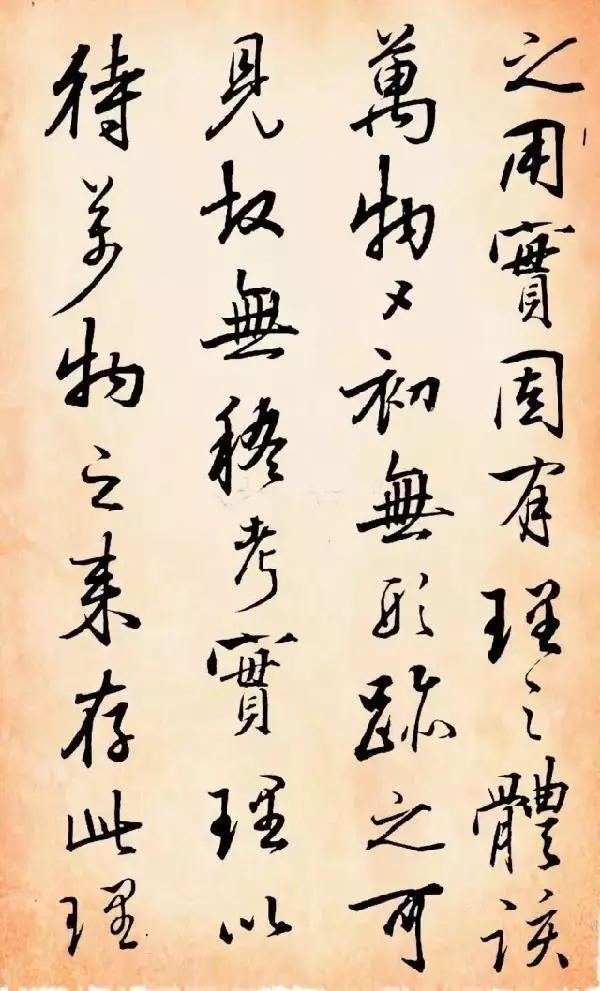 之用實固有理之體該
萬物又初無形跡之可
見故無稽考實理以
待萬物之来存此理